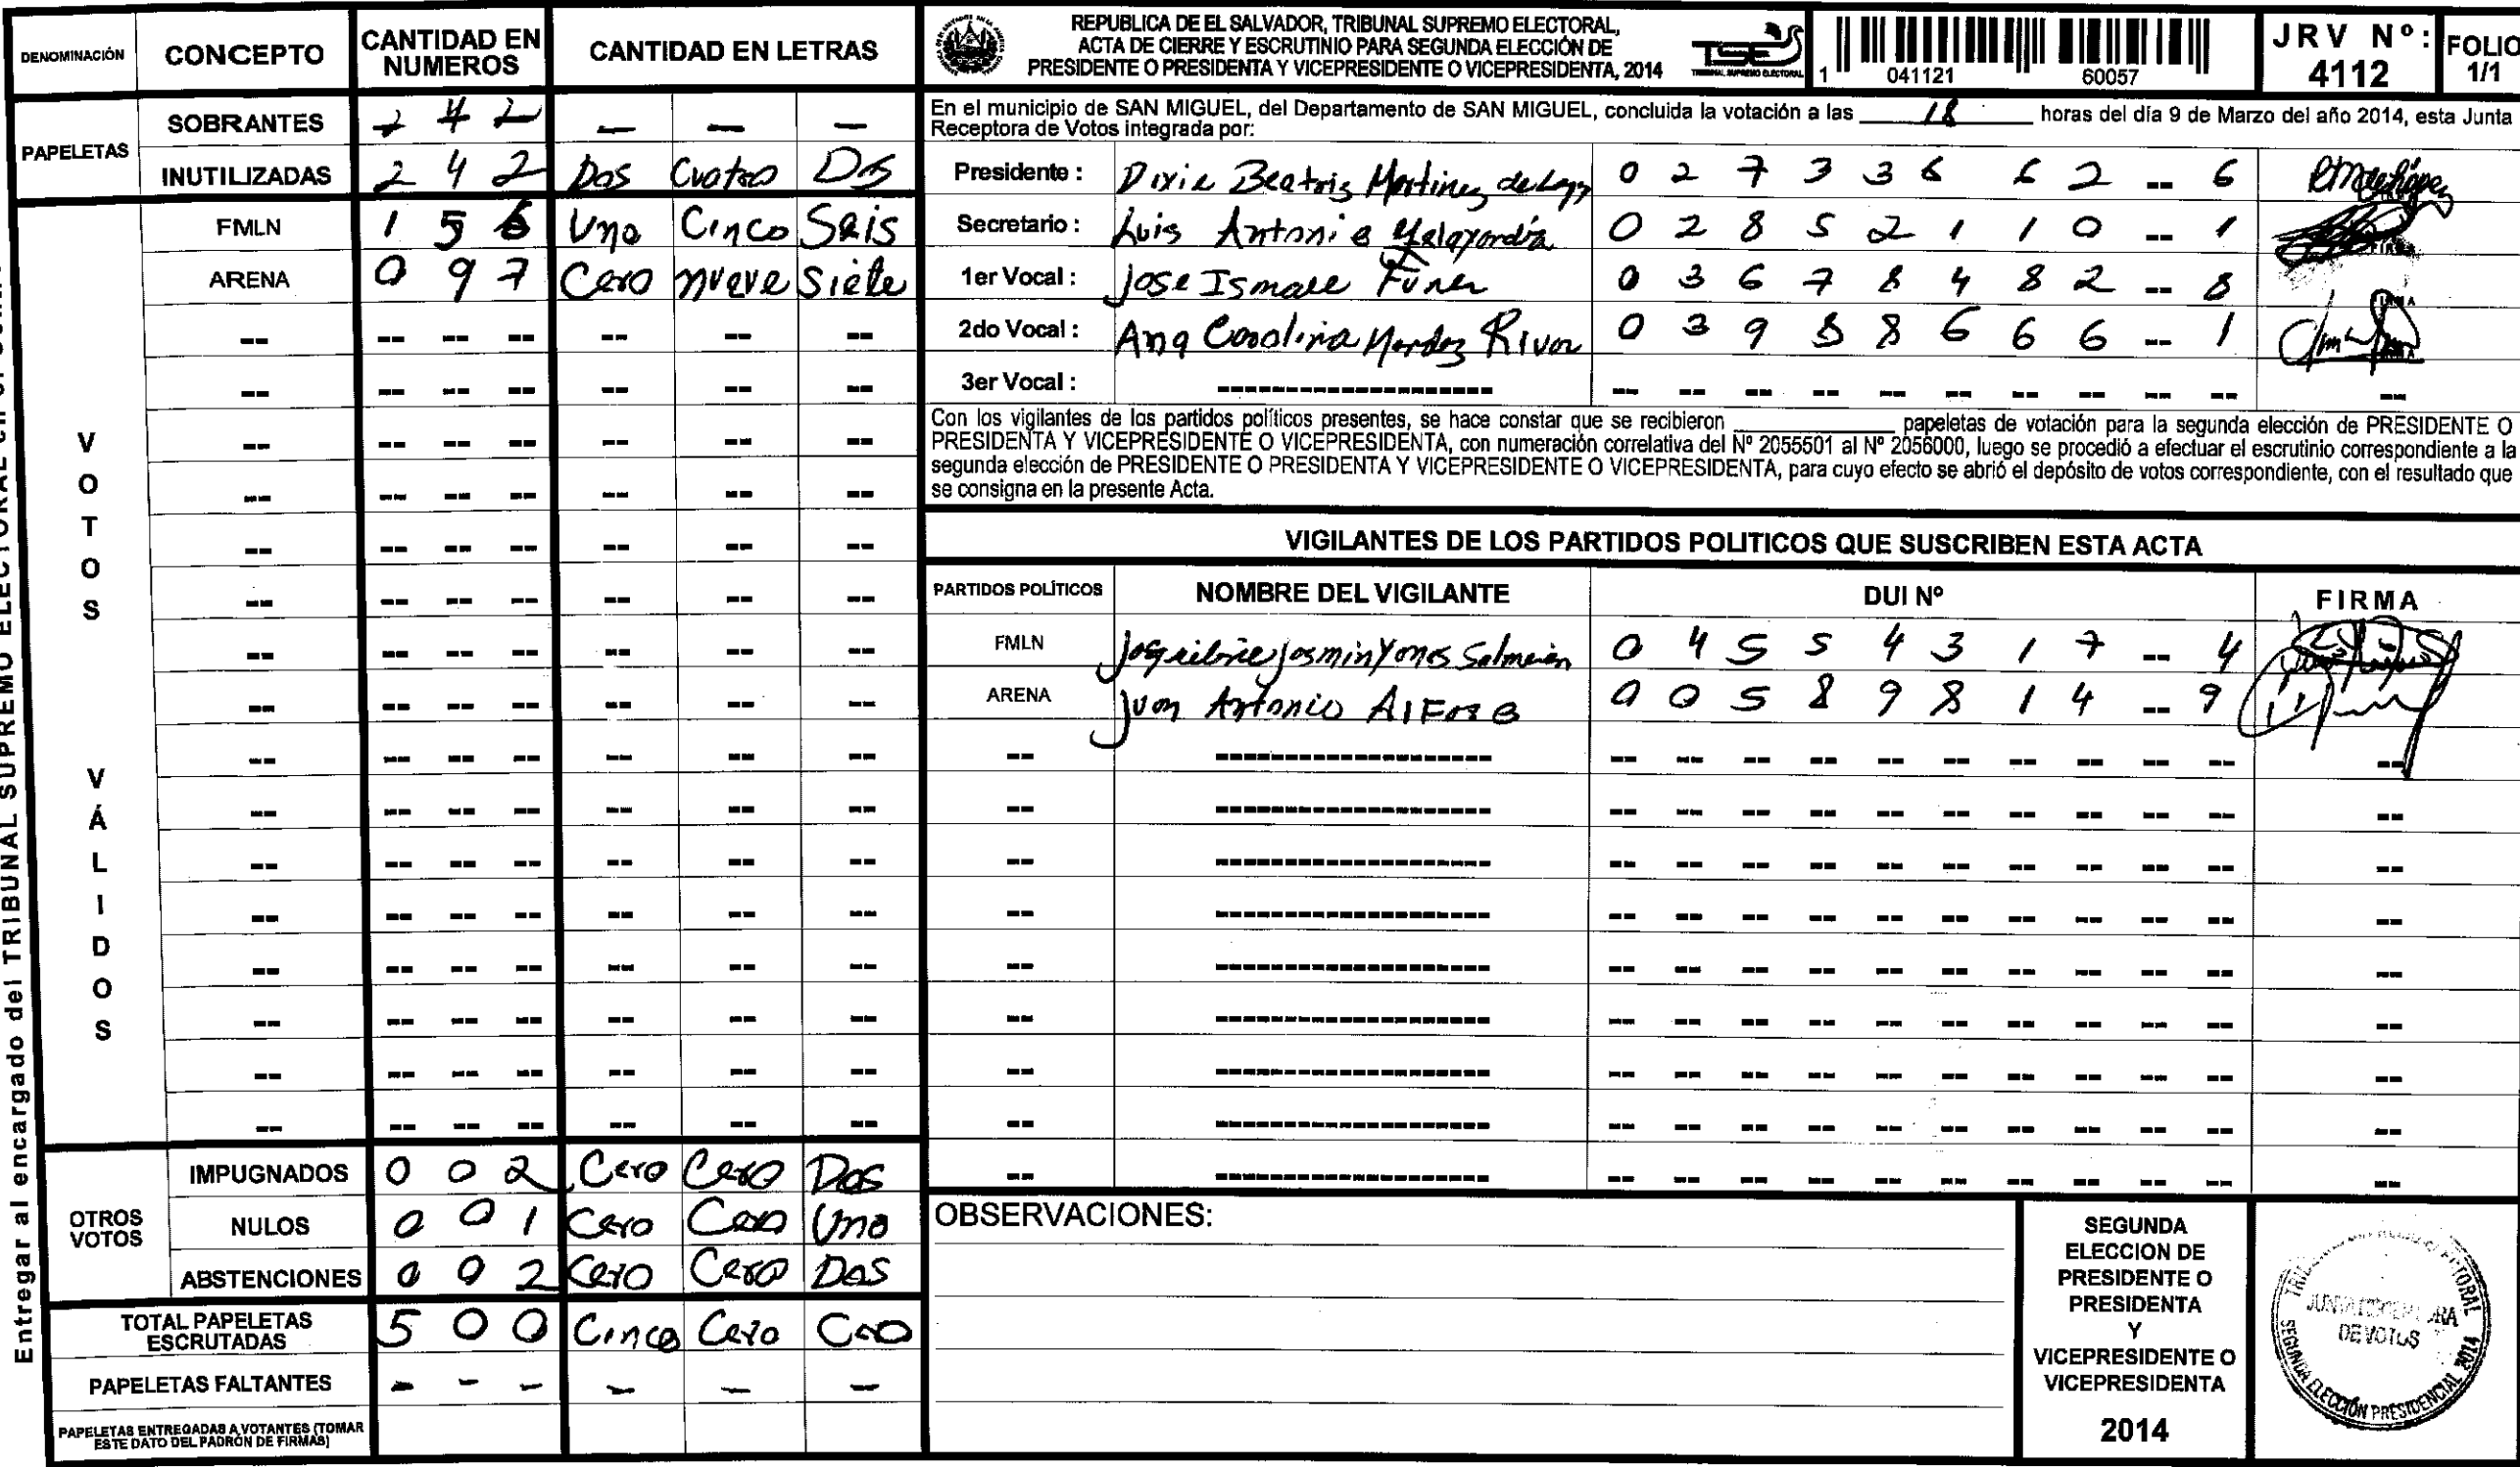 DENOMINACIÓN CONCEPTO CANTIDAD EN NUMEROS CANTIDAD EN LETRAS
PAPELETAS
SOBRANTES 2 4 2 — — —
INUTILIZADAS 2 4 2 Dos Cuatro Dos
VOTOS VÁLIDOS
FMLN 1 5 6 Uno Cinco Seis
ARENA 0 9 7 Cero nueve Siete
OTROS VOTOS
IMPUGNADOS 0 0 2 Cero Cero Dos
NULOS 0 0 1 Cero Cero Uno
ABSTENCIONES 0 0 2 Cero Cero Dos
TOTAL PAPELETAS ESCRUTADAS 5 0 0 Cinco Cero Cero
PAPELETAS FALTANTES - - - - - -
PAPELETAS ENTREGADAS A VOTANTES (TOMAR
ESTE DATO DEL PADRÓN DE FIRMAS)
Entregar al encargado del TRIBUNAL SUPREMO ELECTORAL en el
REPUBLICA DE EL SALVADOR, TRIBUNAL SUPREMO ELECTORAL,
ACTA DE CIERRE Y ESCRUTINIO PARA SEGUNDA ELECCIÓN DE
PRESIDENTE O PRESIDENTA Y VICEPRESIDENTE O VICEPRESIDENTA, 2014
TSE
TRIBUNAL SUPREMO ELECTORAL
1 041121 60057
JRV Nº:
4112
FOLIO
1/1
En el municipio de SAN MIGUEL, del Departamento de SAN MIGUEL, concluida la votación a las 18 horas del día 9 de Marzo del año 2014, esta Junta
Receptora de Votos integrada por:
Presidente : Dixie Beatris Martinez de 0 2 7 3 3 6 6 2 -- 6
Secretario : Luis Antonio 0 2 8 5 2 1 1 0 -- 1
1er Vocal : Jose Ismael Funes 0 3 6 7 8 4 8 2 -- 8
2do Vocal : Ana Carolina Mendez Rivas 0 3 9 8 8 6 6 6 -- 1
3er Vocal :
Con los vigilantes de los partidos políticos presentes, se hace constar que se recibieron ________ papeletas de votación para la segunda elección de PRESIDENTE O
PRESIDENTA Y VICEPRESIDENTE O VICEPRESIDENTA, con numeración correlativa del Nº 2055501 al Nº 2056000, luego se procedió a efectuar el escrutinio correspondiente a la
segunda elección de PRESIDENTE O PRESIDENTA Y VICEPRESIDENTE O VICEPRESIDENTA, para cuyo efecto se abrió el depósito de votos correspondiente, con el resultado que
se consigna en la presente Acta.
VIGILANTES DE LOS PARTIDOS POLITICOS QUE SUSCRIBEN ESTA ACTA
PARTIDOS POLÍTICOS NOMBRE DEL VIGILANTE DUI Nº FIRMA
FMLN Jasmin Salmerón 0 4 5 5 4 3 1 7 -- 4
ARENA Juan Antonio 0 0 5 8 9 8 1 4 -- 9
OBSERVACIONES:
SEGUNDA
ELECCION DE
PRESIDENTE O
PRESIDENTA
Y
VICEPRESIDENTE O
VICEPRESIDENTA
2014
JUNTA RECEPTORA
DE VOTOS
SEGUNDA ELECCIÓN PRESIDENCIAL 2014